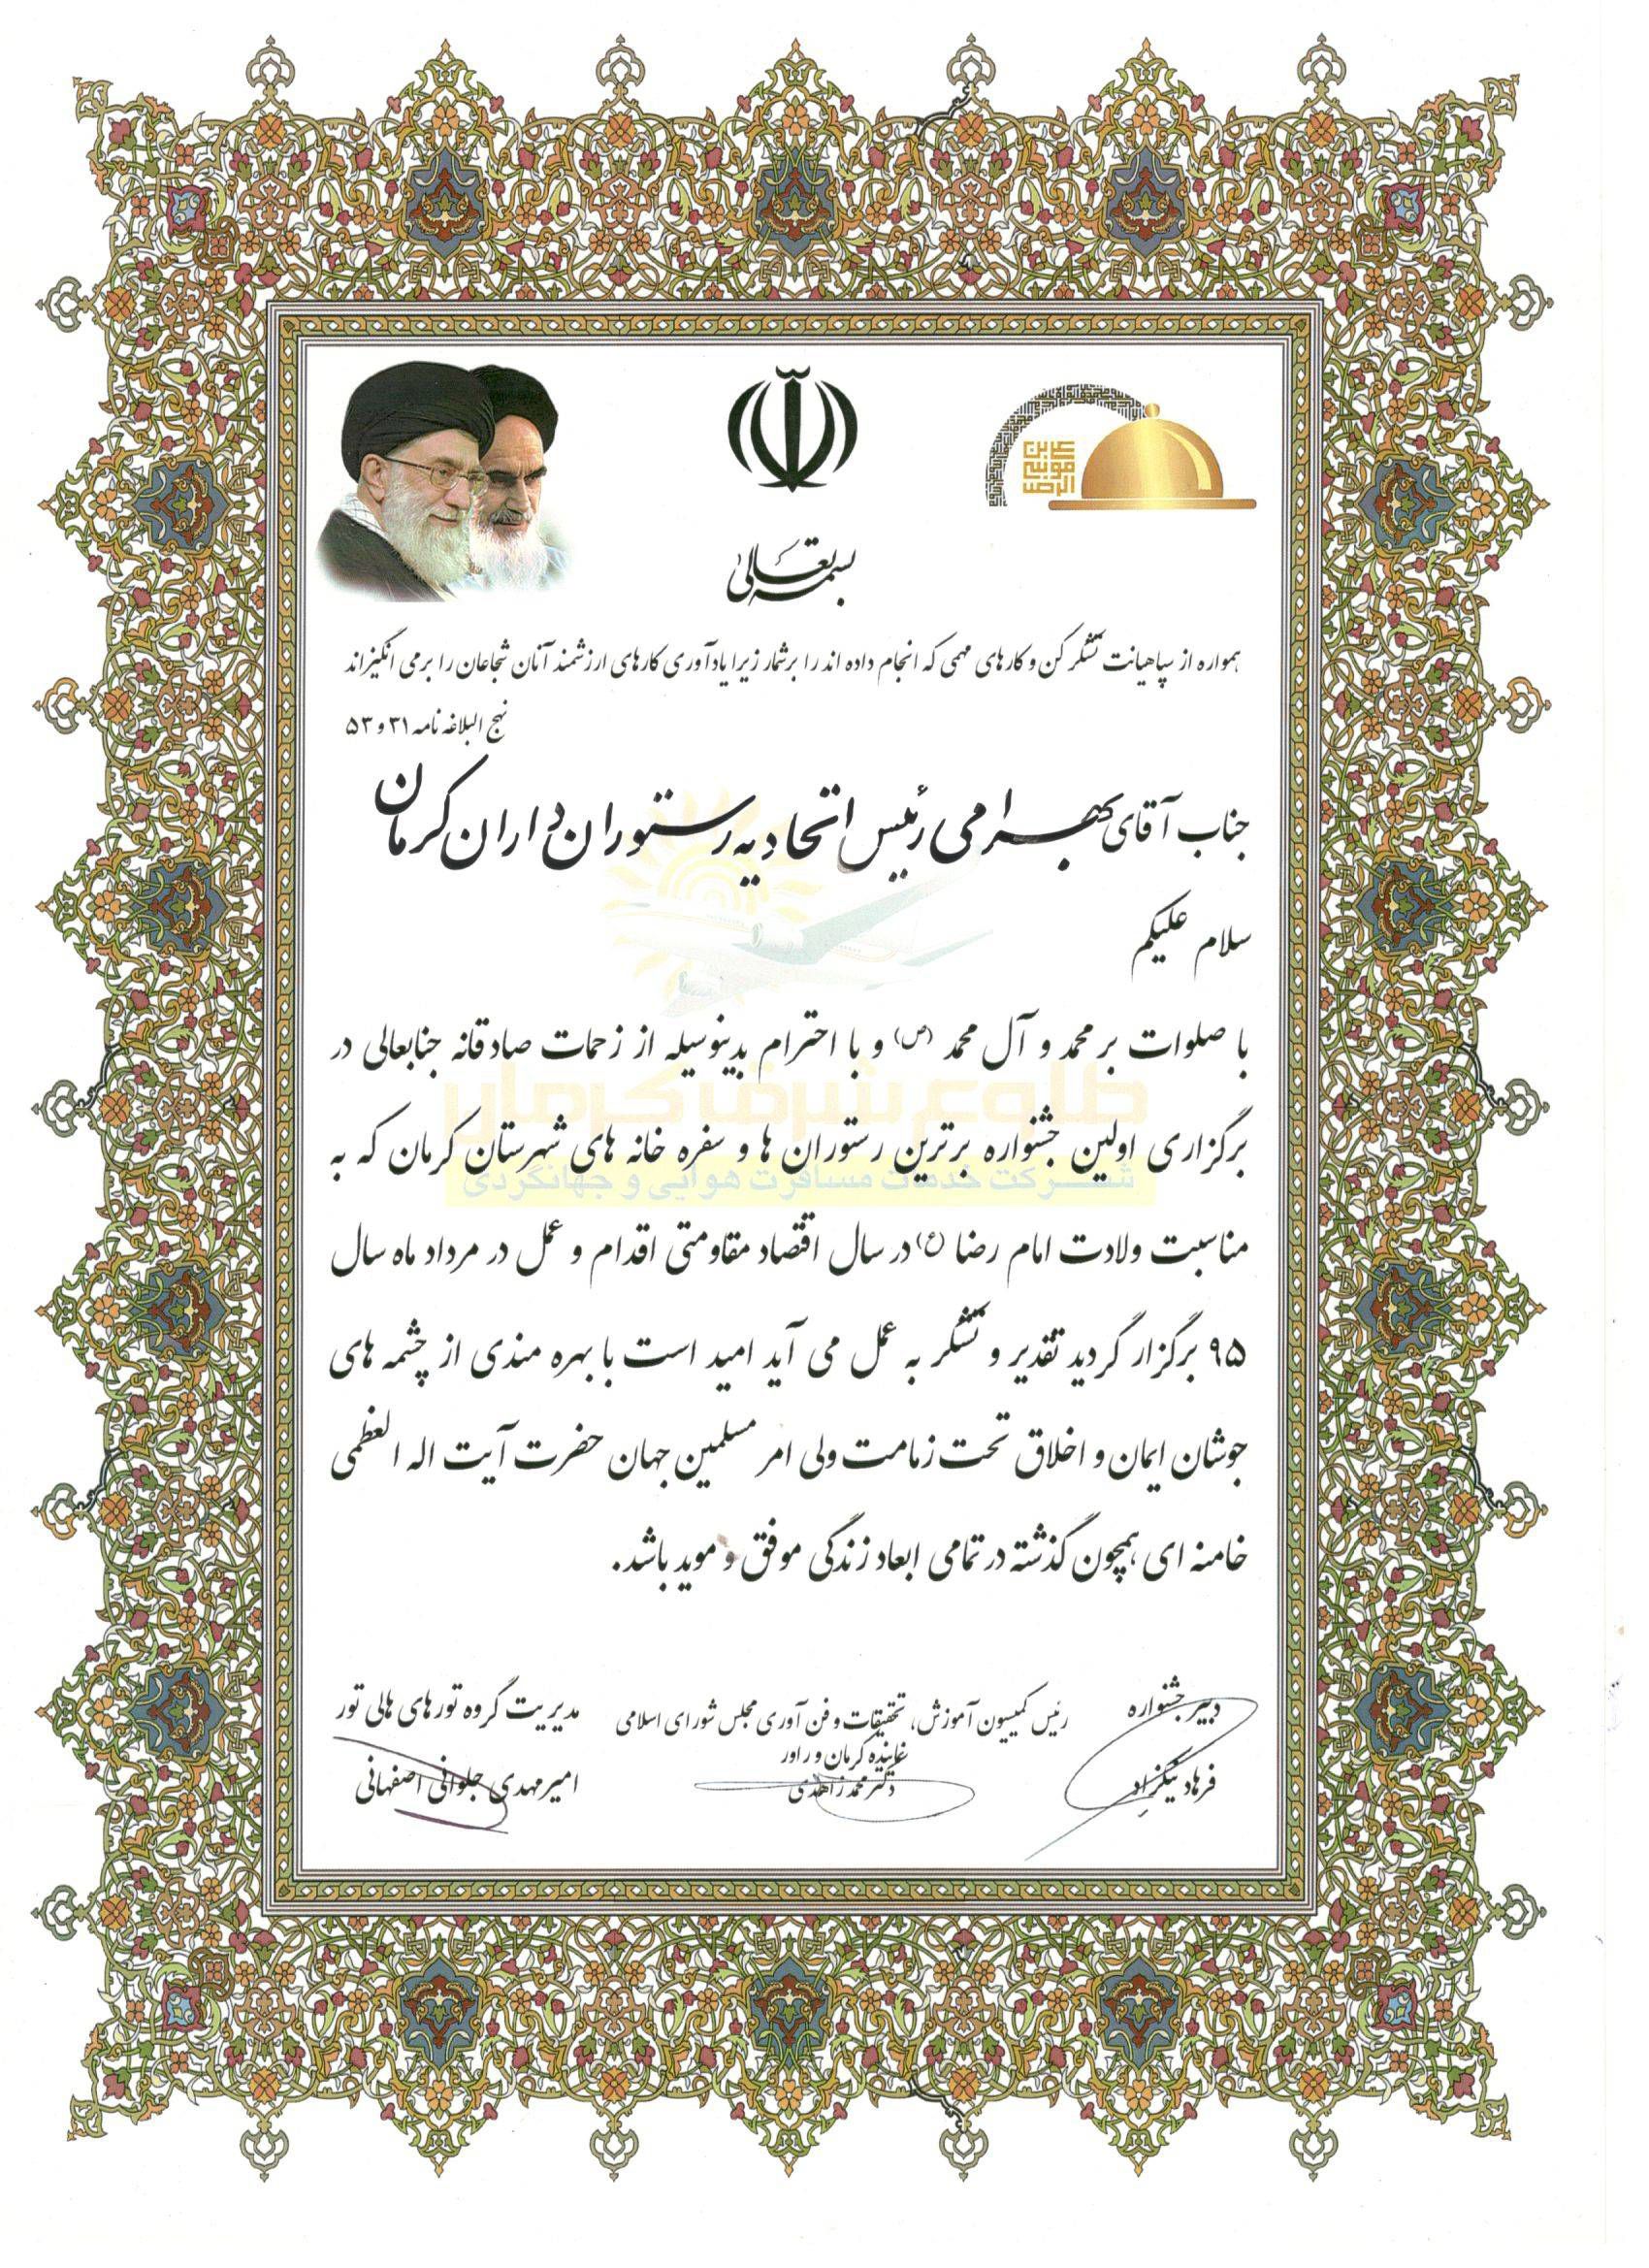 بسمه تعالی
همواره از سپاهیانت تشکر کن و کارهای مهمی که انجام داده اند را برشمار زیرا یادآوری کارهای ارزشمند آنان شجاعان را برمی انگیزاند
نهج البلاغه نامه ۳۱ و ۵۳
جناب آقای بهرامی رئیس اتحادیه رستوران داران کرمان
سلام علیکم
با صلوات بر محمد و آل محمد (ص) و با احترام بدینوسیله از زحمات صادقانه جنابعالی در
طلوع شرق کرمان
برگزاری اولین جشنواره برترین رستوران ها و سفره خانه های شهرستان کرمان که به
شرکت خدمات مسافرت هوایی و جهانگردی
مناسبت ولادت امام رضا (ع) در سال اقتصاد مقاومتی اقدام و عمل در مرداد ماه سال
۹۵ برگزار گردید تقدیر و تشکر به عمل می آید امید است با بهره مندی از چشمه های
جوشان ایمان و اخلاق تحت زمامت ولی امر مسلمین جهان حضرت آیت اله العظمی
خامنه ای همچون گذشته در تمامی ابعاد زندگی موفق و موید باشد.
دبیر جشنواره
فرهاد نیکزاد
رئیس کمیسون آموزش، تحقیقات و فن آوری مجلس شورای اسلامی
نماینده کرمان و راور
دکتر محمد زاهدی
مدیریت گروه تورهای هالی تور
امیرمهدی جلوانی اصفهانی